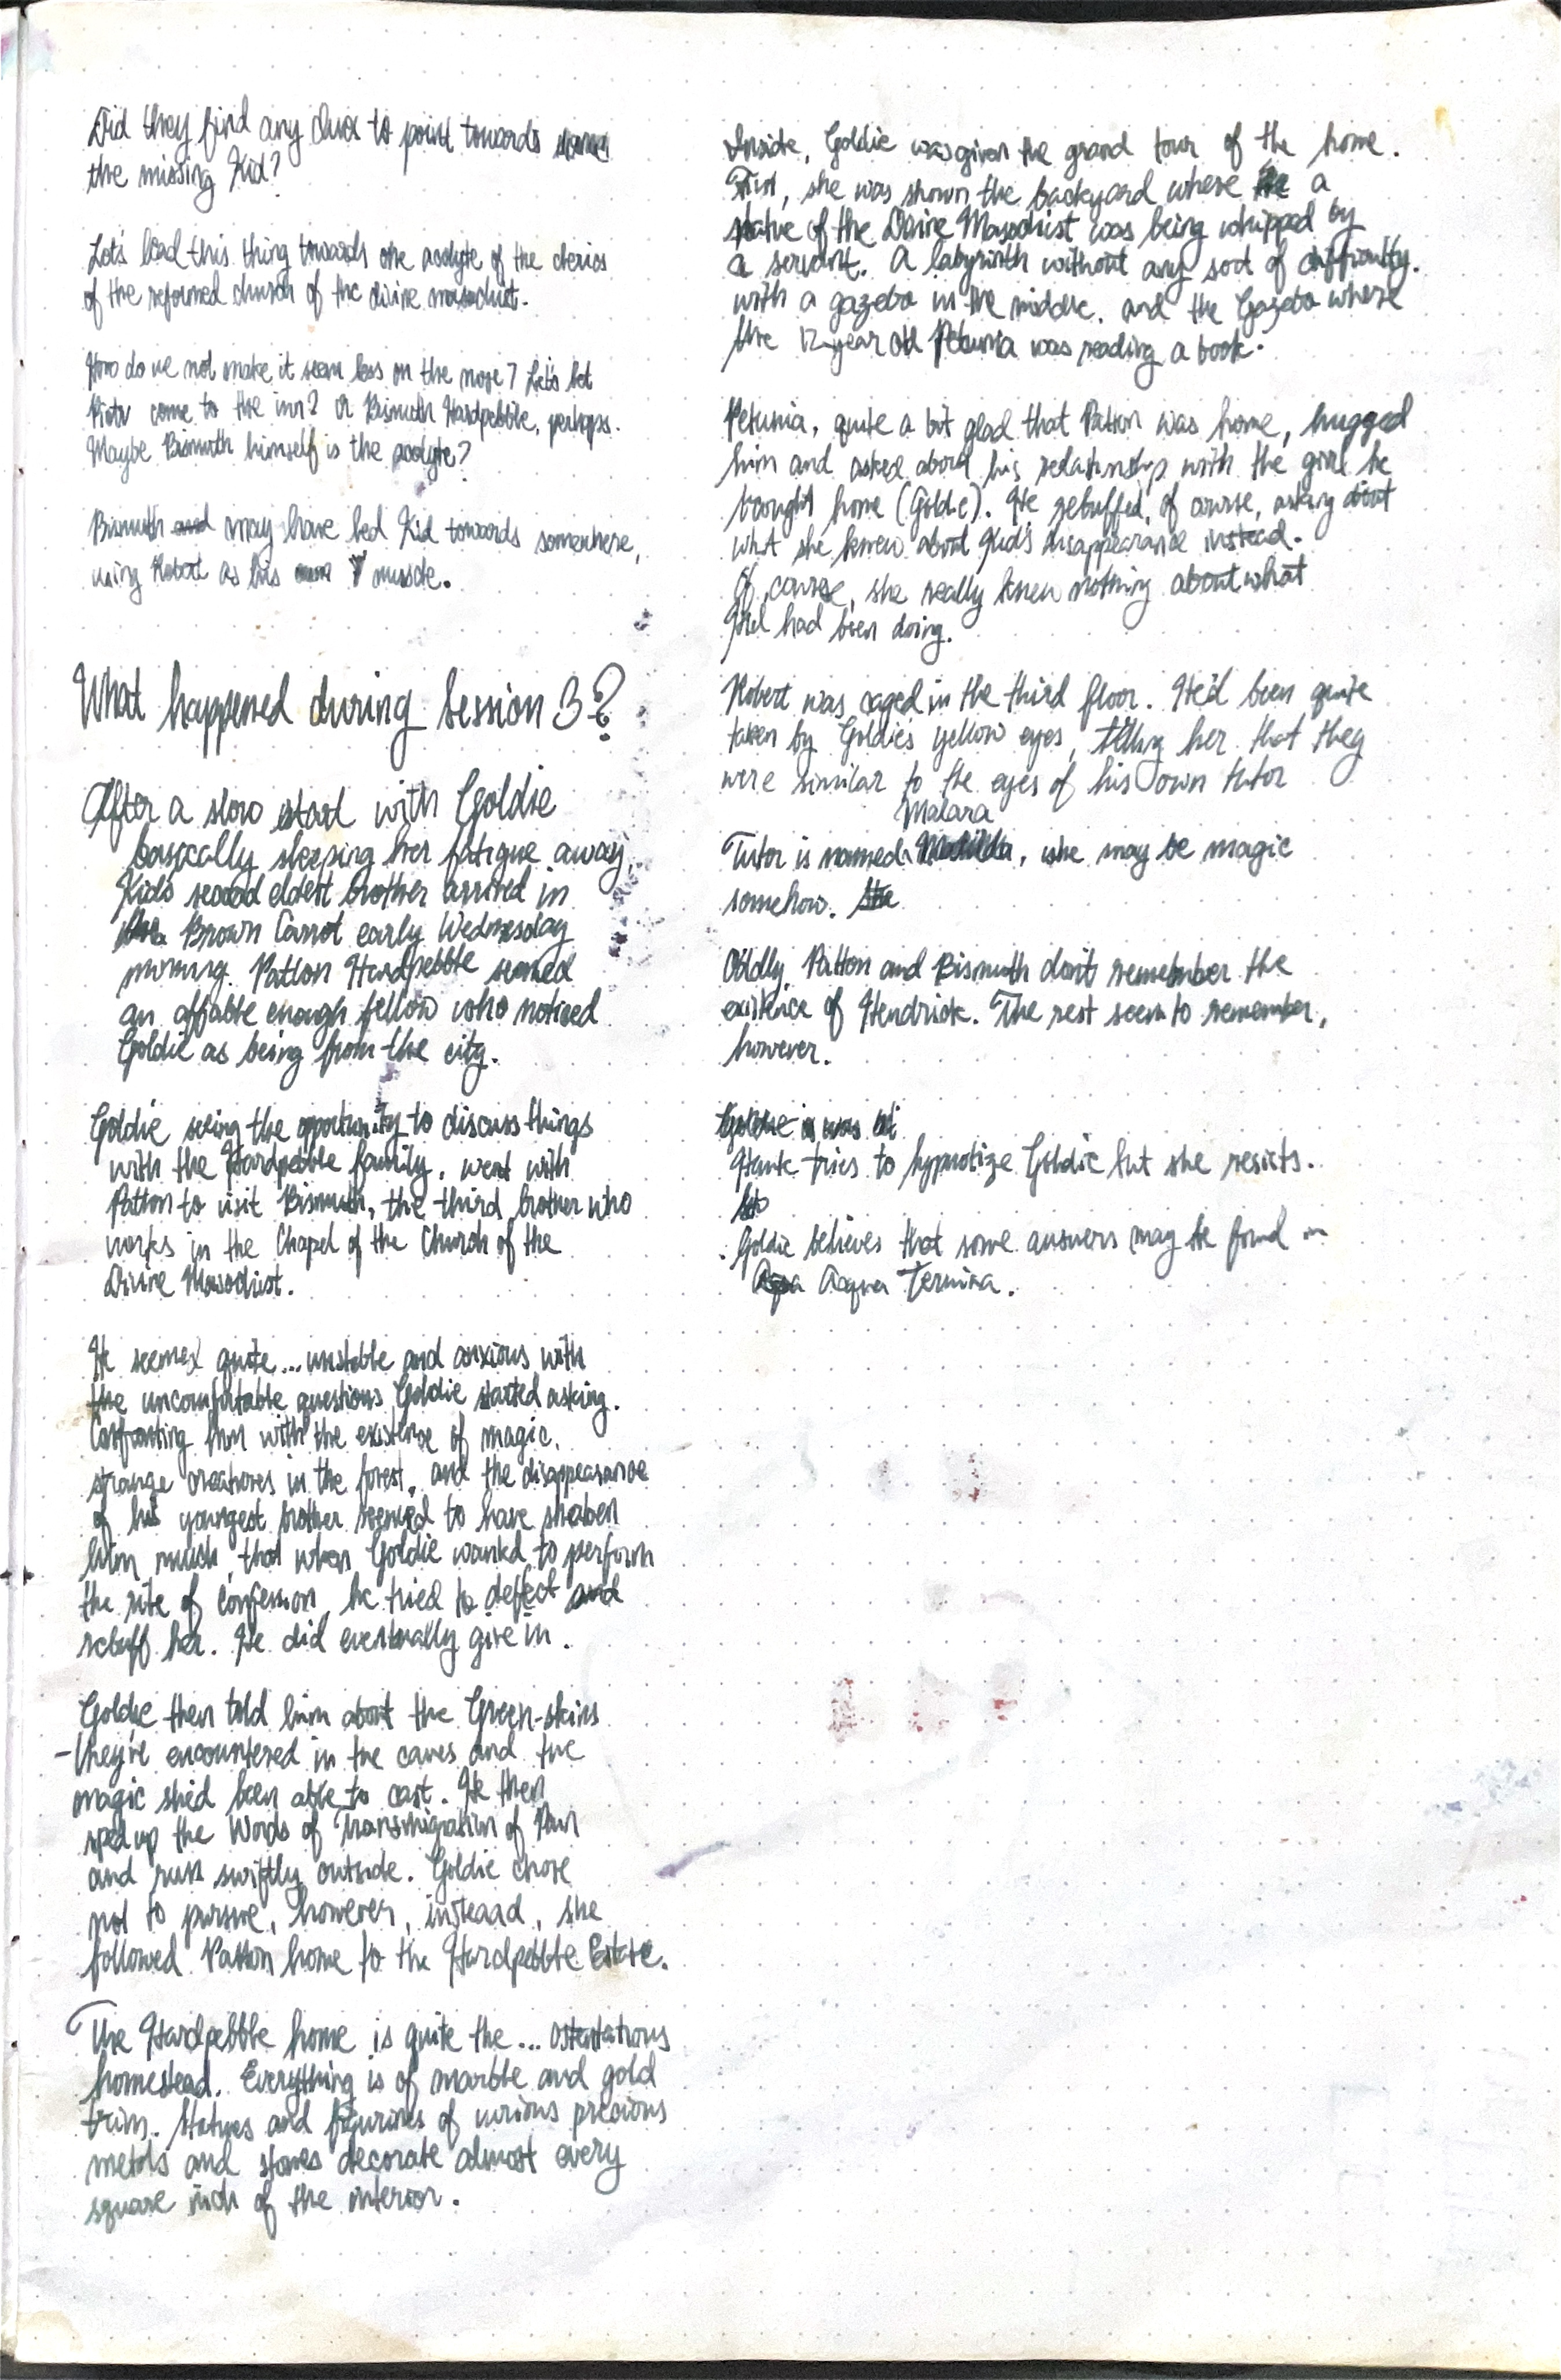 Did they find any clues to point towards
the missing Kid?
Let's lead this thing towards one acolyte of the clerics
of the reformed church of the divine masochist.
How do we not make it seem less on the nose? Let's let
come to the inn? Or Bismuth Hardpebble, perhaps.
Maybe Bismuth himself is the acolyte?
Bismuth and may have led Kid towards somewhere,
using Robert as his muscle.
What happened during Session 3?
After a slow start with Goldie
basically sleeping her fatigue away,
Kid's second eldest brother arrived in
the Brown Carrot early Wednesday
morning. Patton Hardpebble seemed
an affable enough fellow who noticed
Goldie as being from the city.
Goldie seeing the opportunity to discuss things
with the Hardpebble family, went with
Patton to visit Bismuth, the third brother who
works in the Chapel of the Church of the
Divine Masochist.
He seemed quite... unstable and anxious with
the uncomfortable questions Goldie started asking.
Confronting him with the existence of magic,
strange creatures in the forest, and the disappearance
of his youngest brother seemed to have shaken
him much, that when Goldie wanted to perform
the rite of confession, he tried to deflect and
rebuff her. He did eventually give in.
Goldie then told him about the Green-skins
- they've encountered in the caves and the
magic she'd been able to cast. He then
sped up the Words of Transmigration of Pain
and runs swiftly outside. Goldie chose
not to pursue, however, instead, she
followed Patton home to the Hardpebble Estate.
The Hardpebble home is quite the... ostentatious
homestead. Everything is of marble and gold
trim. Statues and figurines of various precious
metals and stones decorate almost every
square inch of the interior.
Inside, Goldie was given the grand tour of the home.
First, she was shown the backyard where a
statue of the Divine Masochist was being whipped by
a servant. A labyrinth without any sort of difficulty.
with a gazebo in the middle. and the Gazebo where
the 12-year old Petunia was reading a book.
Petunia, quite a bit glad that Patton was home, hugged
him and asked about his relationship with the girl he
brought home (Goldie). He rebuffed, of course, asking about
what she knew about Kid's disappearance instead.
Of course, she really knew nothing about what
had been doing.
Robert was caged in the third floor. He'd been quite
taken by Goldie's yellow eyes, telling her that they
were similar to the eyes of his own tutor
Malara
Tutor is named Matilda, she may be magic
somehow. She
Oddly, Patton and Bismuth don't remember the
existence of Hendrick. The rest seem to remember,
however.
Goldie is was
Hank tries to hypnotize Goldie but she resists.
Goldie believes that some answers may be found in
Aqua Acqua Termina.